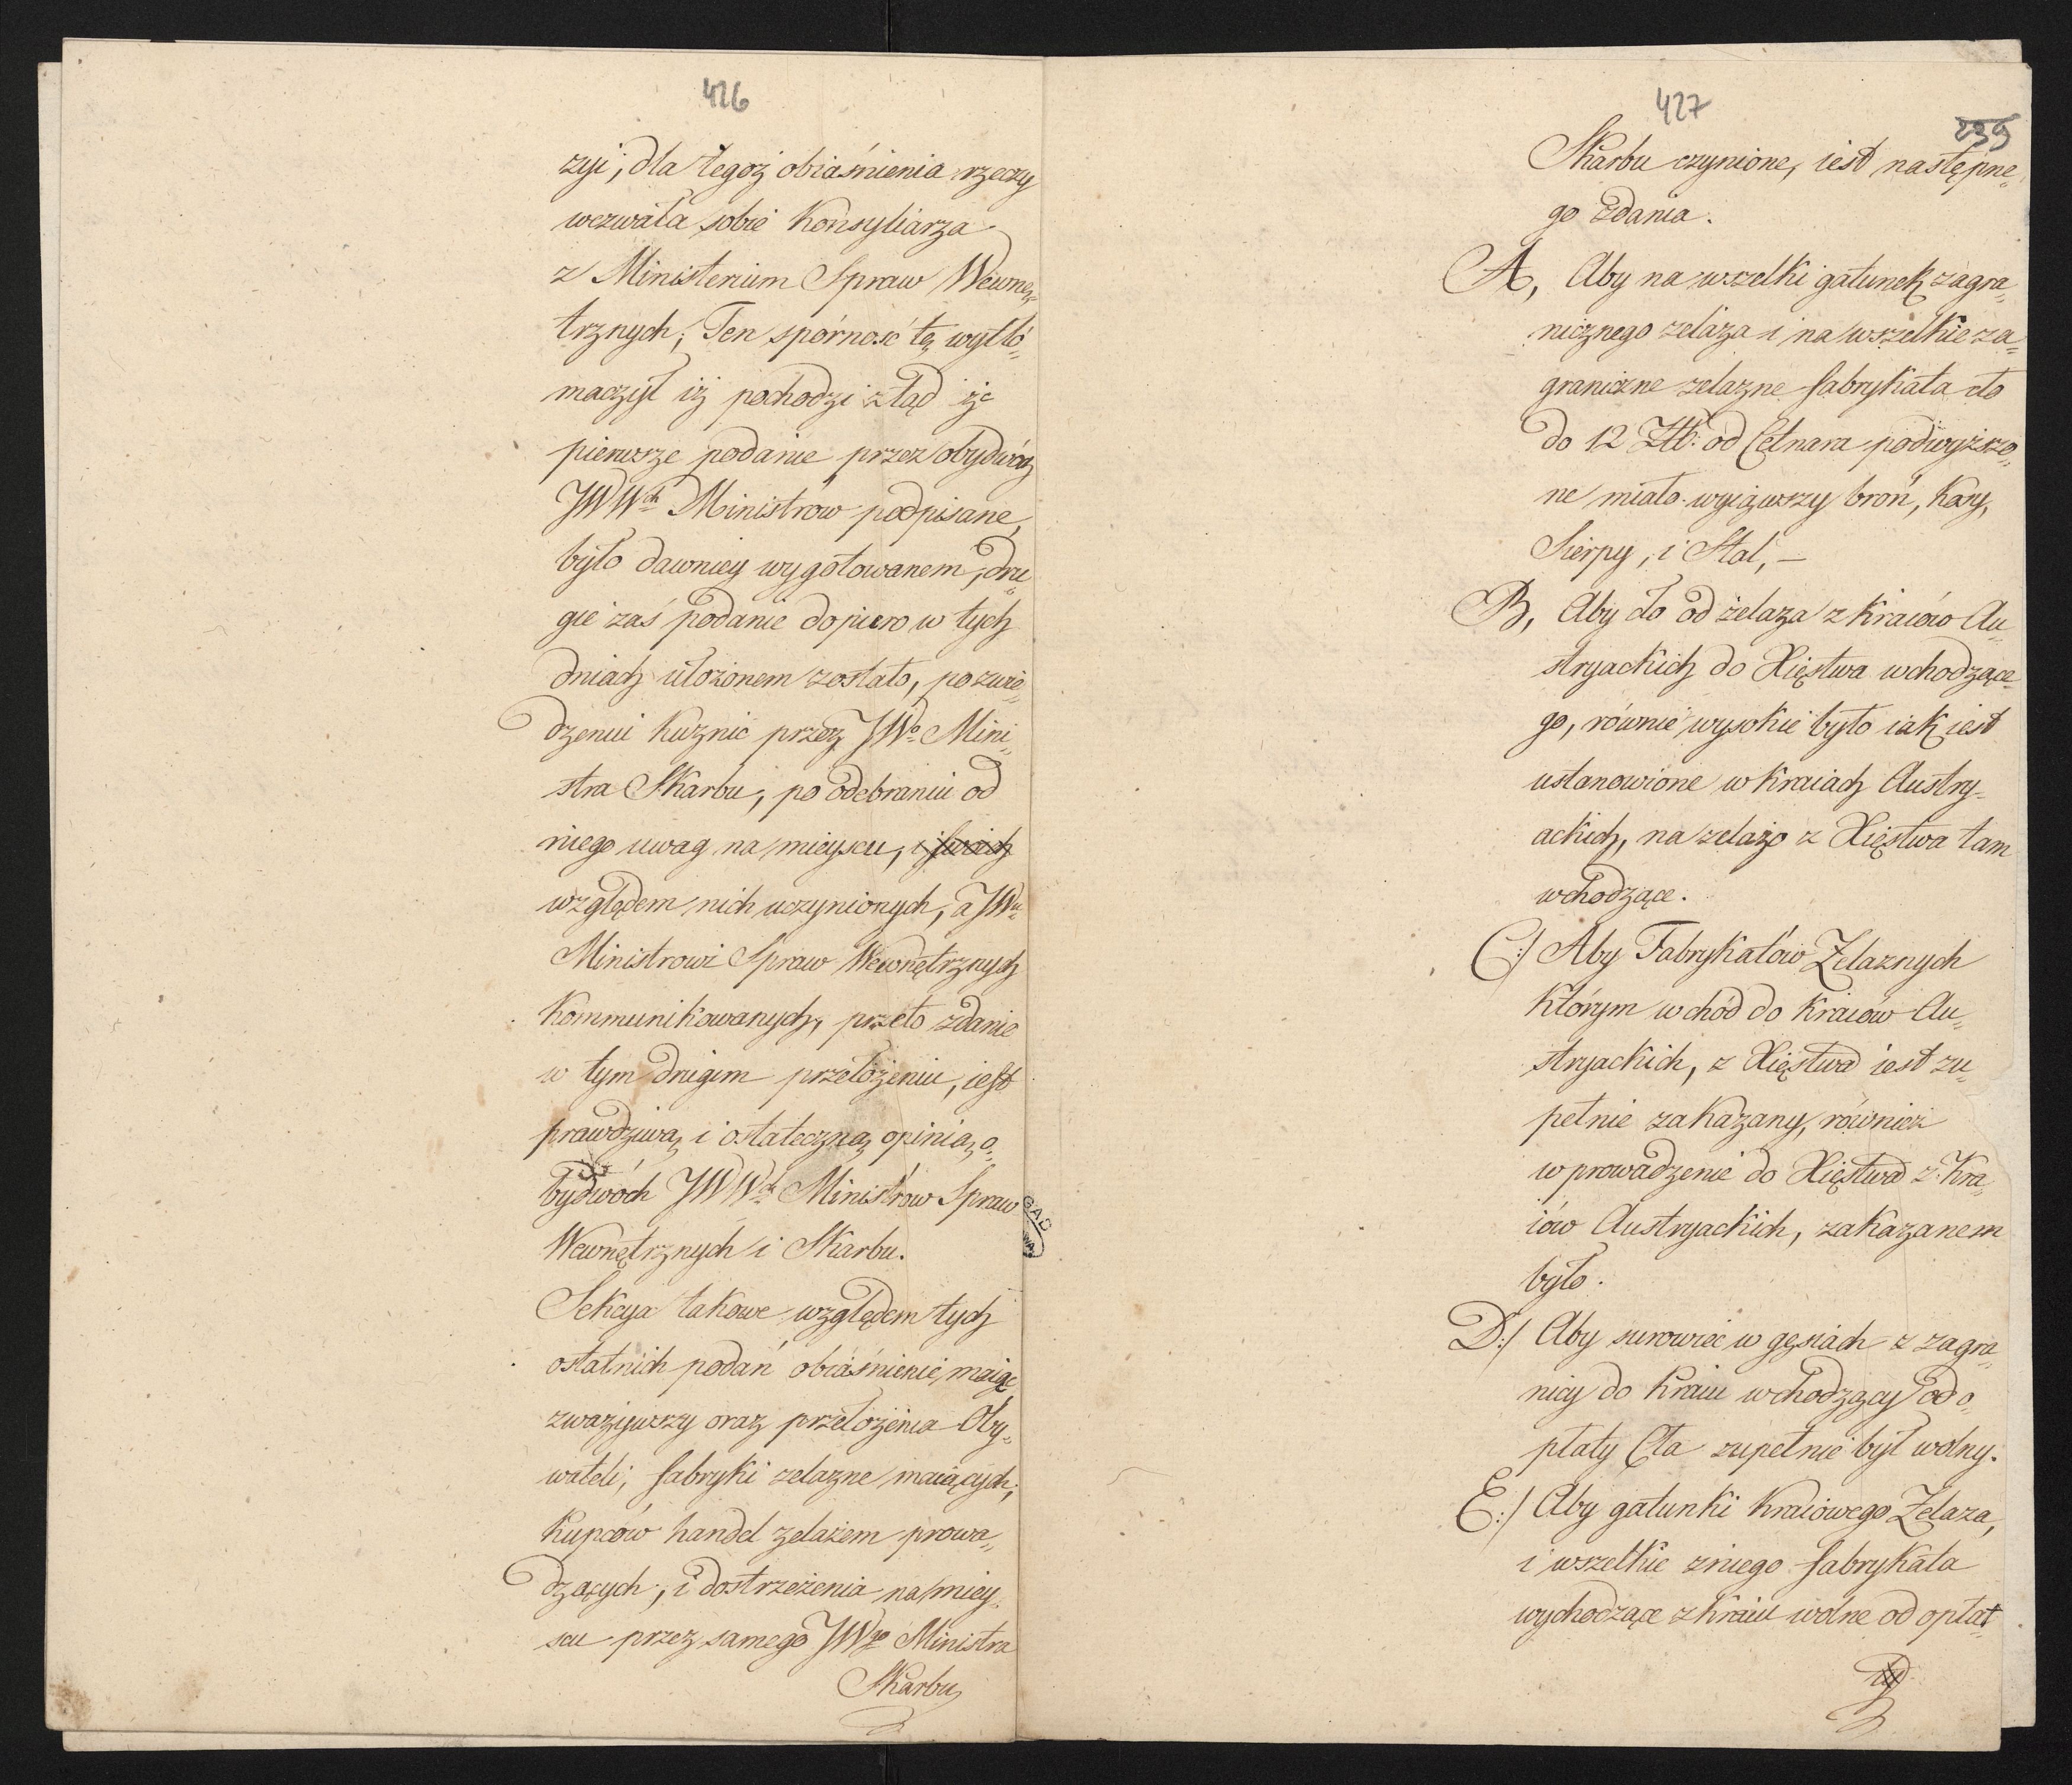 426
zyi, dla tegoż obiaśnienia rzeczy
wezwała sobie Konsyliarza
z Ministerium Spraw Wewnę„
trznych; Ten spórność tę wytłó„
maczył iż pochodzi ztąd że
pierwsze podanie przez obydwóch
JWWch Ministrów podpisane,
było dawniey wygotowanem, dru„
gie zaś podanie dopiero w tych
dniach ułożonem zostało, po zwie„
dzeniu kuznic przez JWo Mini„
stra Skarbu, po odebraniu od
niego uwag na mieyscu, i swoich
względem nich uczynionych, a JWu
Ministrowi Spraw Wewnętrznych
Kommunikowanych, przeto zdanie
w tym drugim przełożeniu, iest
prawdziwą i ostateczną opinią o„
bydwóch JWWch Ministrów Spraw
Wewnętrznych i Skarbu.
Sekcya takowe względem tych
ostatnich podań obiaśnienie maiąc
zważywszy oraz przełożenia Oby„
wateli, fabryki zelazne maiących,
Kupców handel zelazem prowa„
dzących, i dostrzeżenia na miey„
scu przez samego JWgo Ministra
Skarbu
GAD
WA
427
239
Skarbu czynione, iest następne„
go zdania.
A, Aby na wszelki gatunek zagra„
nicznego zelaza i na wszelkie za„
graniczne zelazne fabrykata cło
do 12 Złł: od Cetnara podwyższo„
ne miało wyiąwszy broń, Kosy,
Sierpy, i Stal, —
B, Aby cło od żelaza z Kraiów Au„
stryackich do Xięstwa wchodzące„
go, równie wysokie było iak iest
ustanowione w Kraiach Austry„
ackich, na zelazo z Xięstwa tam
wchodzące.
C:/ Aby Fabrykatów Żelaznych
którym wchód do Kraiów Au„
stryackich, z Xięstwa iest zu„
pełnie zakazany, również
wprowadzenie do Xięstwa z Kra„
iów Austryackich, zakazanem
było.
D:/ Aby surowiec w gęsiach z zagra„
nicy do Kraiu wchodzący od o„
płaty Cła zupełnie był wolny.
E:/ Aby gatunki Kraiowego Żelaza,
i wszelkie z niego fabrykata
wychodzące z Kraiu wolne od opłat„